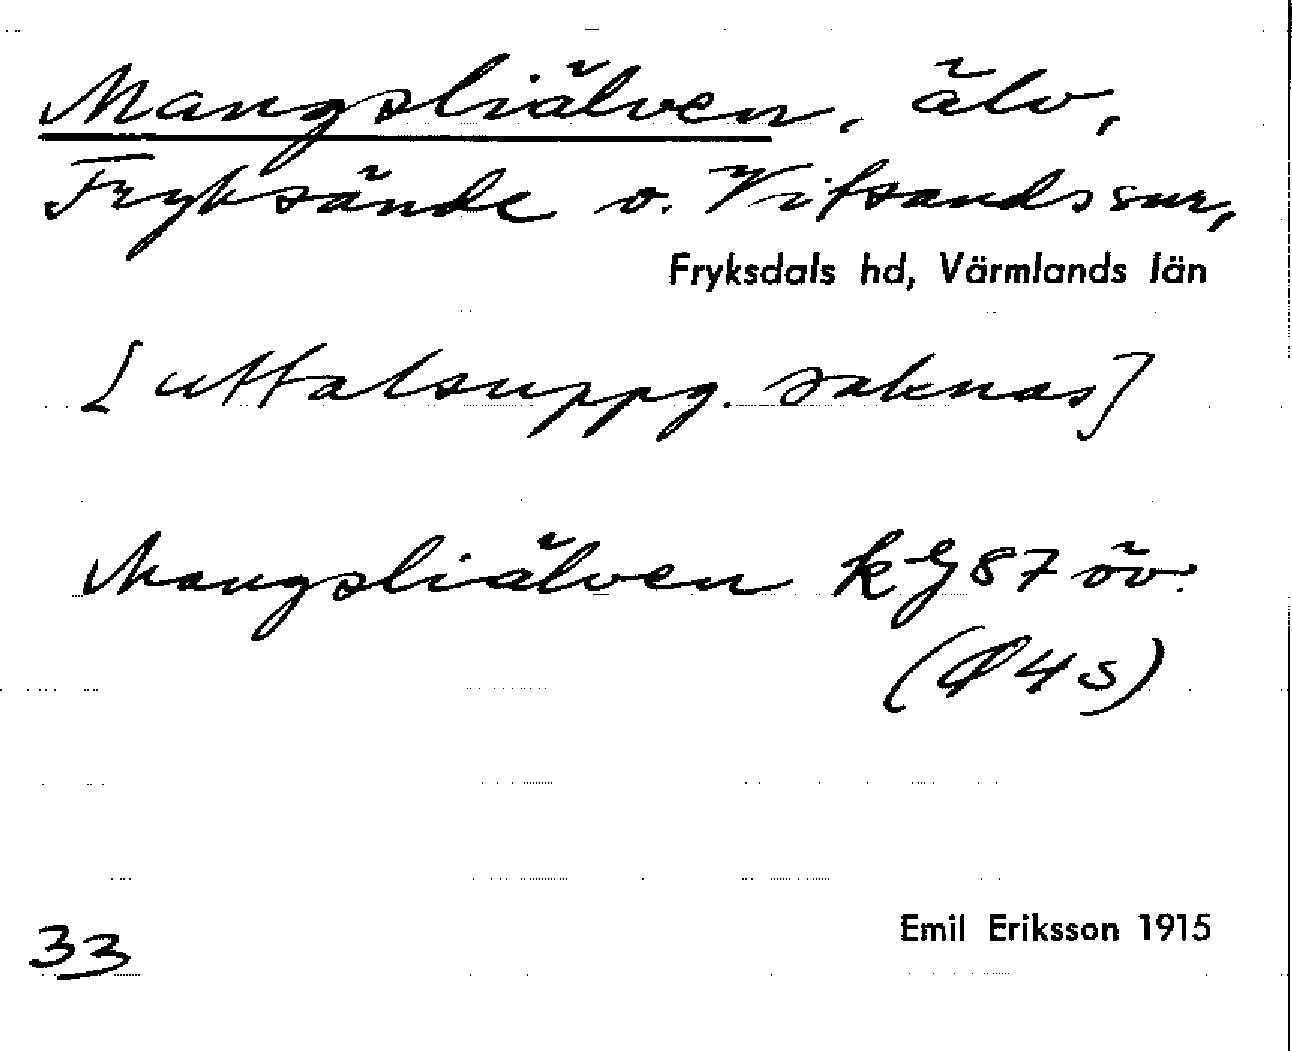 Mangsliälven, älv,
Fryksände o. Vitsands snr,
Fryksdals hd, Värmlands län
[uttalsuppg. saknas]
Mangsliälven kG87 öv.
(Ø4s)
33
Emil Eriksson 1915